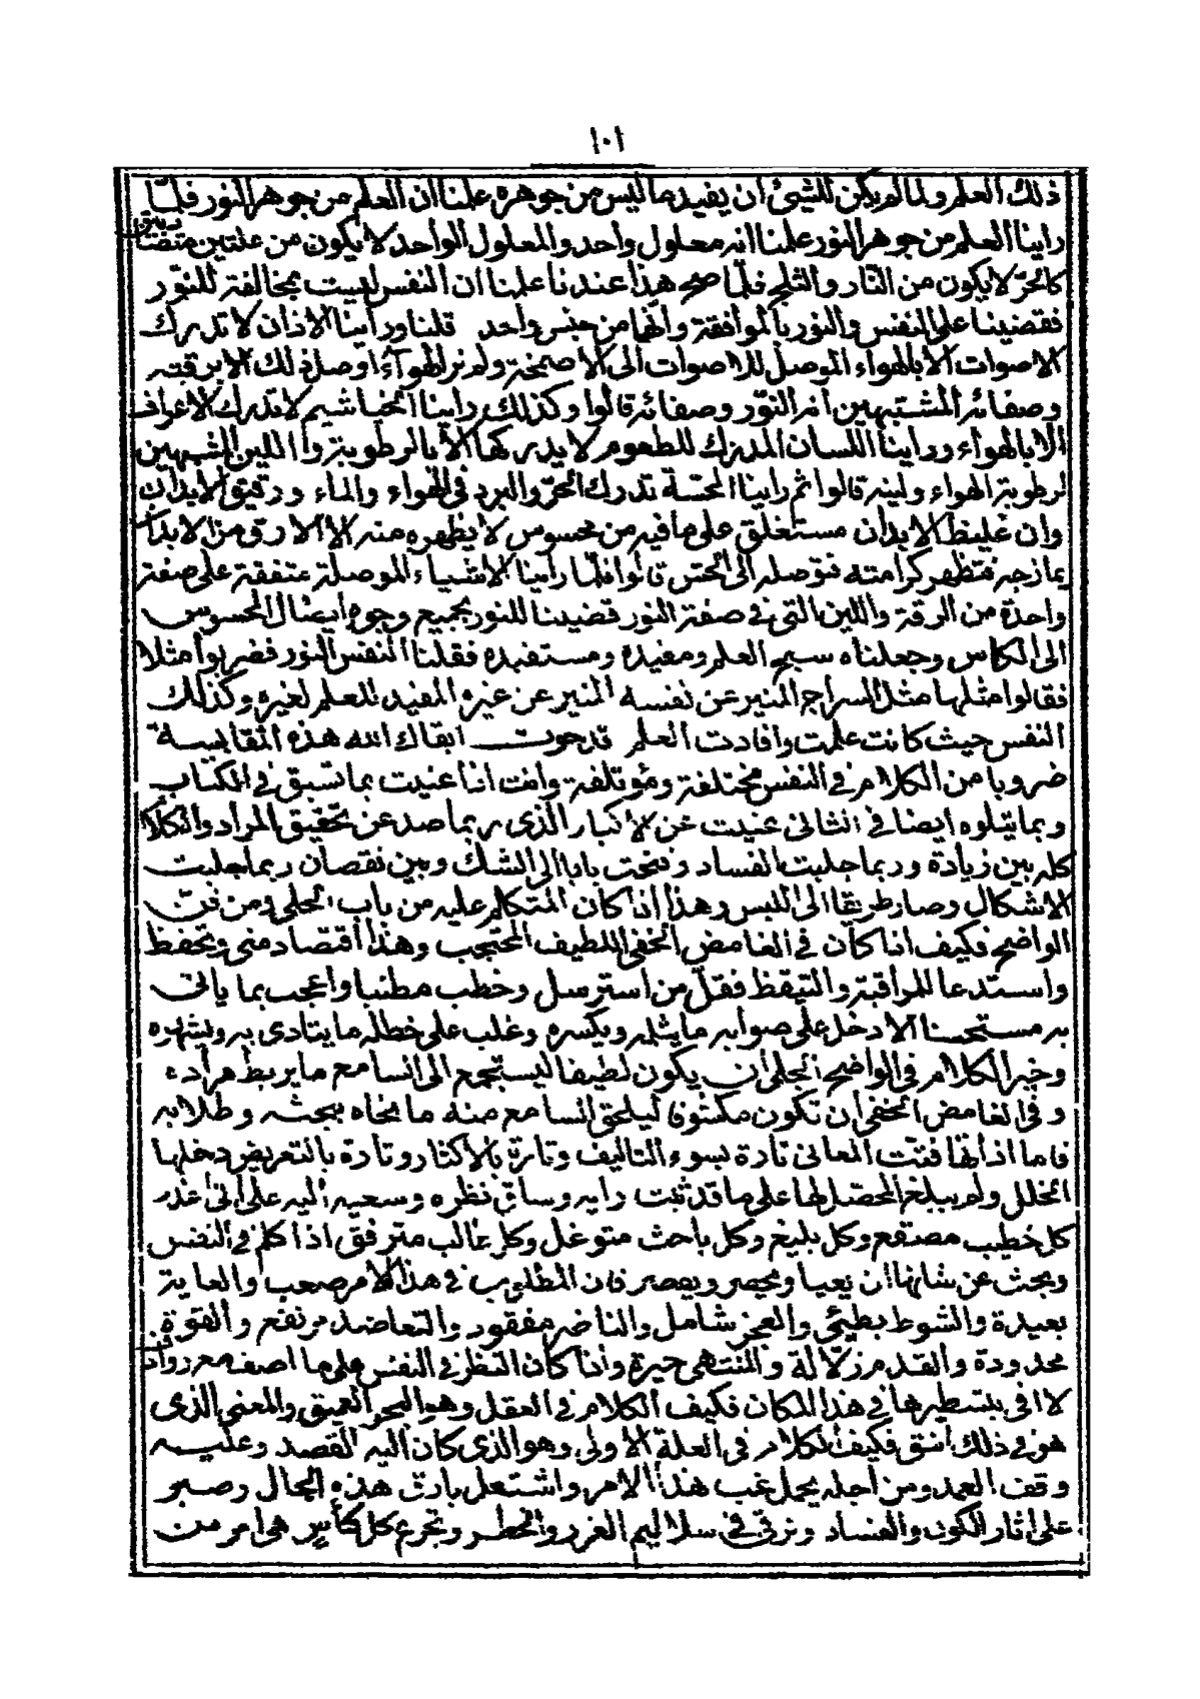 ١٠١
ذلك العلم ولما لم يكن للشيئ ان يفيد ما ليس من جوهره علمنا ان العلم من جوهر النور فلمّا
راينا العلم من جوهر النور علمنا انه معلول واحد والمعلول الواحد لا يكون من علتين متضادتين
كالحرّ لا يكون من النّار والثلج فلمّا صح هذا عندنا علمنا ان النفس ليست بمخالفة للنوّر
فقضينا على النفس والنور بالموافقة وانّهما من جنس واحد قلنا ورأينا الاذان لا تدرك
الاصوات الا بالهواء الموصل للاصوات الى الاصمخة ولم نر الهوآء اوصل ذلك الا برقته
وصفائه المشتبهين له النوّر وصفائه قالوا وكذلك راينا الخياشيم لا تدرك الاعراف
الا بالهواء وراينا اللسان المدرك للطعوم لا يدركها الا بالرطوبة واللين الشبهين
لرطوبة الهواء ولينه قالوا ثم راينا المحسّة تدرك الحرّ والبرد في الهواء والماء ورقيق الابدان
وان غليظ الابدان مستغلق على ما فيه من محسوس لا يظهره منه الا الارق من الابدان
يمازجه فتظهر كرامته فتوصله الى الحسّ قالوا فلمّا راينا الاشياء الموصلة متفقة على صفة
واحدة من الرقة واللين التي في صفة النور قضينا للنور بجميع وجوه ايصال المحسوس
الى الحاس وجعلناه سبح العلم ومفيده ومستفيده فقلنا النفس النور فضربوا مثلا
فقالوا مثلها مثل السراج المنير عن نفسه المنير عن غيره المفيد للعلم لغيره وكذلك
النفس حيث كانت علمت وافادت العلم قد حوت ابقاك الله هذه المقايسة
ضروبا من الكلام في النفس مختلفة ومؤتلفة وانت اذا عنيت بما سبق في الكتاب
وبما يتلوه ايضا في الثاني غنيت عن الاكثار الذى ربما صد عن تحقيق المراد والكلام
كله بين زيادة وربما جلبت الفساد وفتحت بابا الى الشك وبين نقصان ربما جلبت
الاشكال وصار طريقا الى اللبس وهذا اذا كان المتكلم عليه من باب الجلي ومن فنّ
الواضح فكيف اذا كان في الغامض الخفي اللطيف المحتجب وهذا اقتصاد مني وتحفظ
واستدعا للمراقبة والتيقظ فقل من استرسل وخطب مطنبا واعجب بما ياتى
به مستحسنا الا دخل على صوابه ما يثلمه ويكسره وغلب على خطله ما يتادى به ويشهره
وخير الكلام في الواضح الجلي ان يكون لطيفا ليستجمع الى السامع ما يربط مراده
وفي الغامض الخفي ان تكون مكشوفا ليلحق السامع منه ما نحاه ببحثه وطلابه
فاما اذا لها فتت المعاني تارة بسوء التاليف وتارة بالاكثار وتارة بالتعريض دخلها
الخلل ولم يبلغ المحصل لها على ما قد ثبت رايه وساق نظره وسعيه اليه على انى اعذر
كل خطيب مصقع وكل بليغ وكل باحث متوغل وكل طالب مترفق اذا كلم في النفس
وبحث عن شانها ان يعيا ويحصر ويقصر فان المطلوب في هذا الامر صعب والغاية
بعيدة والشوط بطيئ والعجز شامل والناصر مفقود والتعاضد مرتفع والقوة
محدودة والقدم زلّالة والمنتهى حيرة واذا كان النظر في النفس على ما اصفه معرروان
لا افى بتسطيرها في هذا المكان فكيف الكلام في العقل وهو البحر العميق والمعنى الذى
هو في ذلك انتق فكيف الكلام في العلة الاولى وهو الذى كان اليه القصد وعليه
وقف العمد ومن اجله يحمل غب هذا الامر واشتعل بارق هذه الحال وصبر
على اثار الكون والفساد وترقى في سلاليم الغرر والخطر وتجرع كل كأسٍ هى امر من